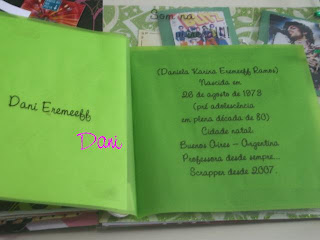 Dani Eremeeff
Dani
(Daniela Karina Eremeeff Ramos)
Nascida em
26 de agosto de 1973
(pré adolescência
em plena década de 80)
Cidade natal:
Buenos Aires - Argentina
Professora desde sempre...
Scrapper desde 2007.